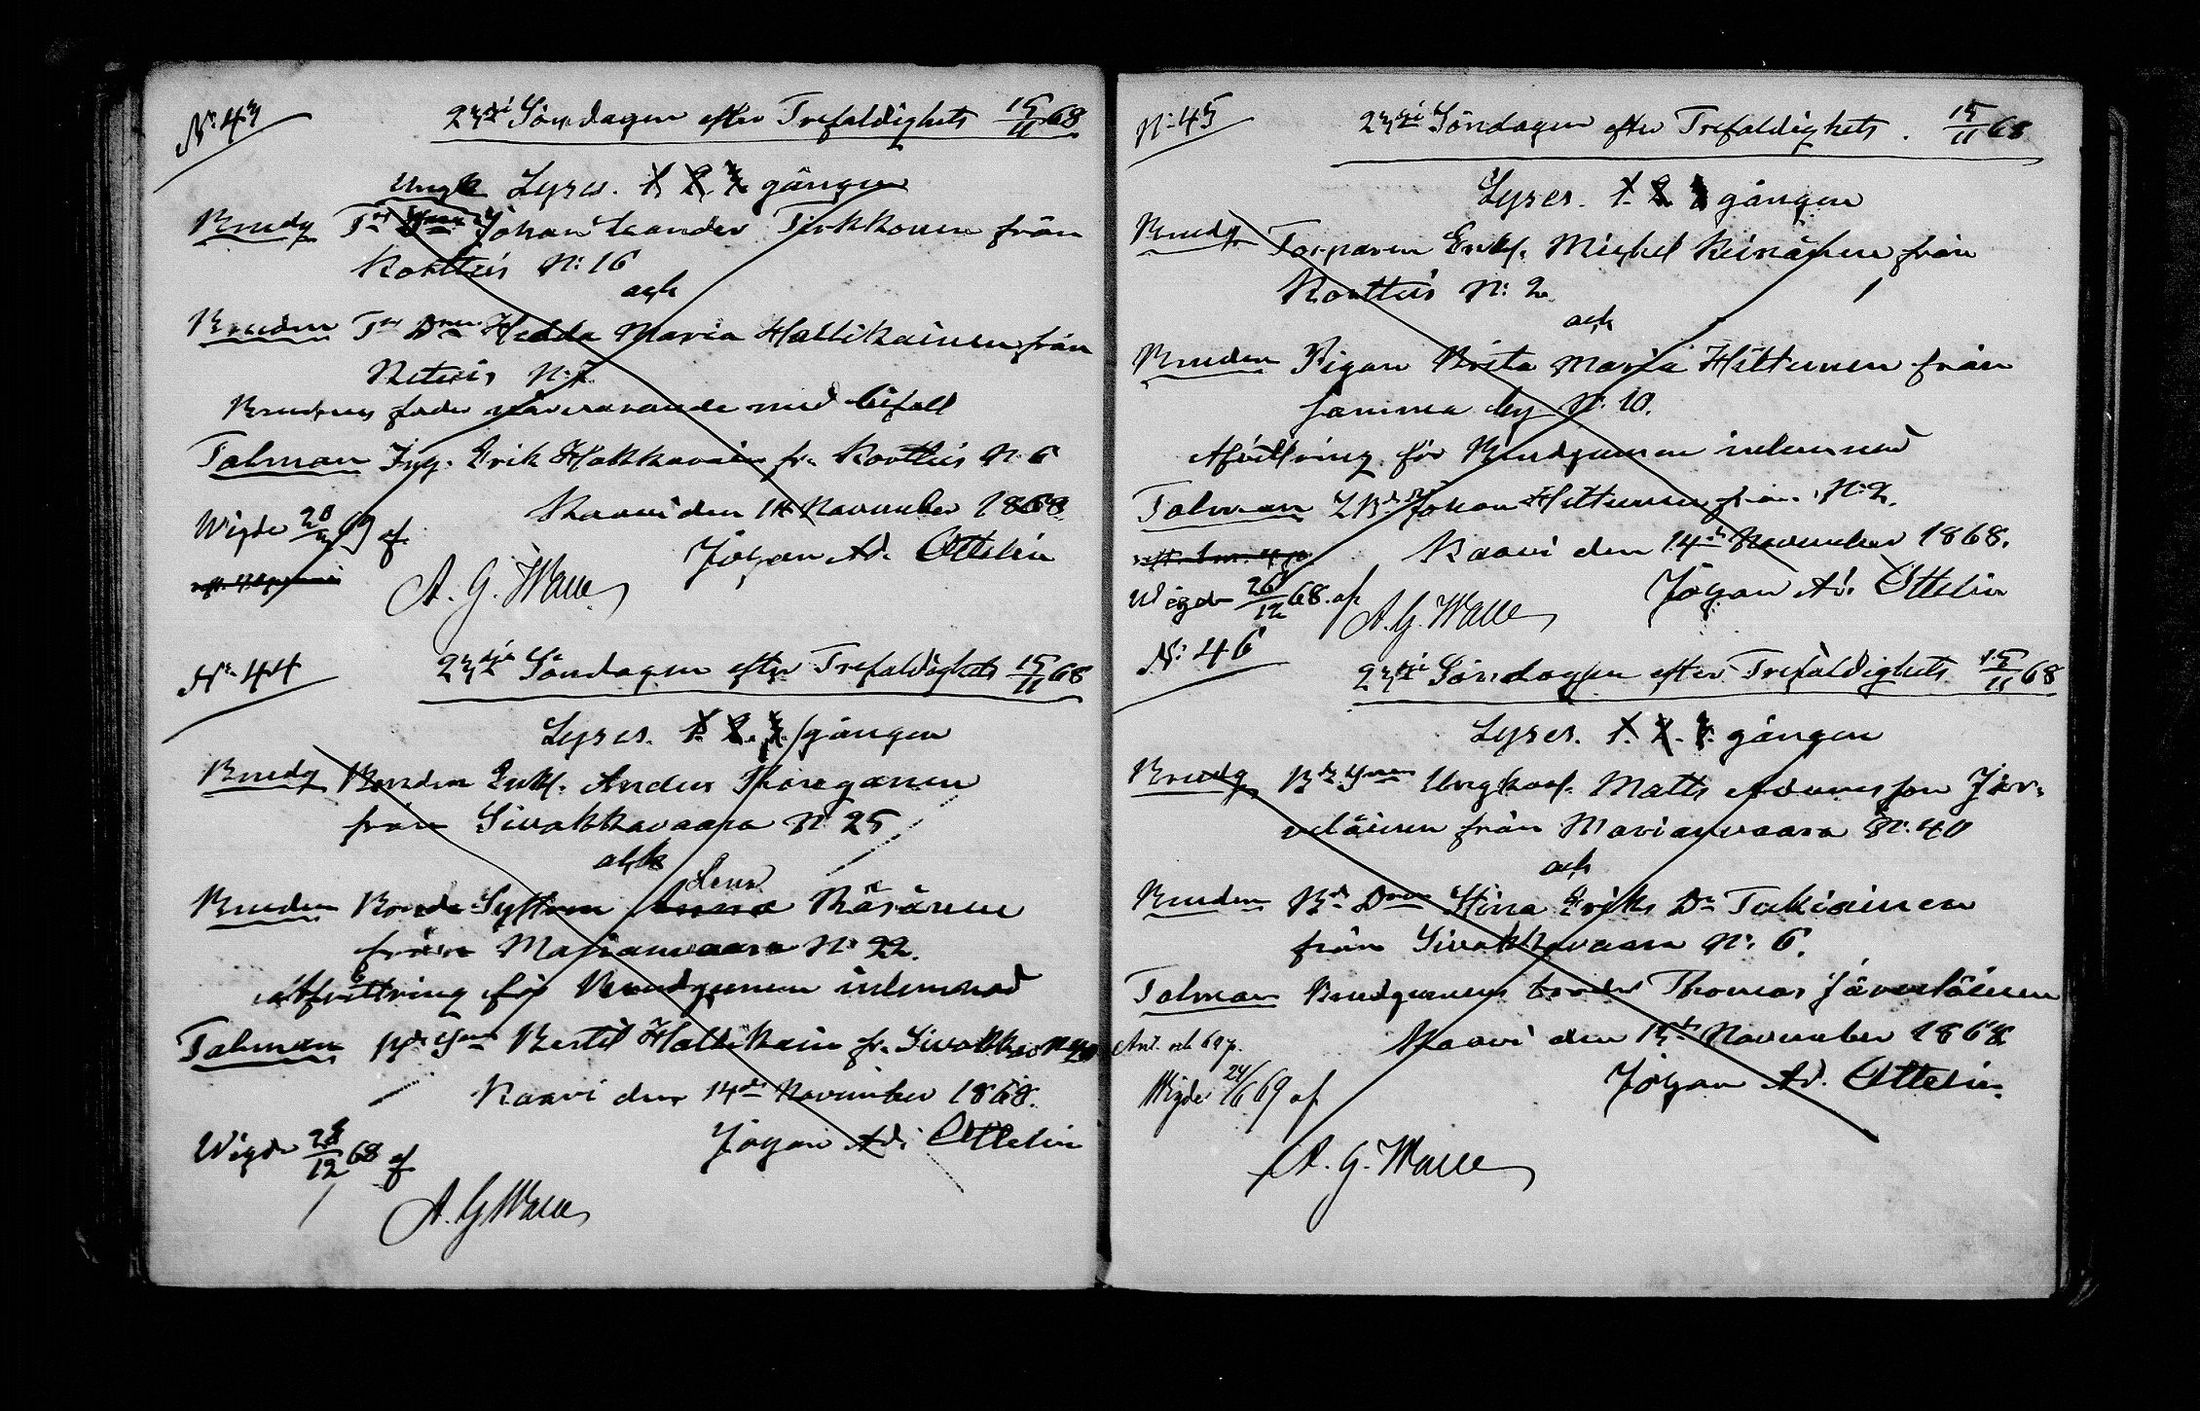 N:43
23dje Söndagen efter Trefaldighets 15/11 68
Lyses. 1. 2. 3. gången
Ungk
Brudg Johan Leander Tirkkonen från
Kortteis N: 16
och
Bruden Tor Dren Hedda Maria Hallikainen från
N: 7.
Brudens fader närvarande med bifall
Talman Erik Hakkarain fr. Kortteis N: 6
Kaavi den 14 November 1868.
Wigde af
Johan Ad. Ottelin
A. G. Walle
N: 44
23dje Söndagen efter Trefaldighets 15/11 68
Lyses. 1. 2. 3. gången
Brudg Bonden Enkl. Anders
från Sivakkavaara N: 25
och
Lena
Bruden Bonde Räsänen
från Marianvaara N: 22.
Afvittring för Brudgummen inlemnad
Talman Bde Sen Bertil Hallikain fr.
Kaavi den 14de November 1868.
Johan Ad. Ottelin
Wigde 28/12 68 af
A. G. Walle
N: 45
23dje Söndagen efter Trefaldighets. 15/11 68
Lyses. 1. 2. 3. gången
Brudg Torparen Enkl. Michel Reinäinen från
Kortteis N: 2
och
Bruden Pigan Brita Maria Hiltunen från
samma by N: 10.
Afvittring för Brudgummen inlemnad
Talman Johan Hiltunen från N: 2.
Kaavi den 14de November 1868.
Johan Ad. Ottelin
Wigde 26/12 68. af
A. G. Walle
N: 46
23dje Söndagen efter Trefaldighets 15/11 68
Lyses. 1. 2. 3. gången
Brudg Bde Sen Ungkarl. Matts Adamsson Jär-
veläinen från Marianvaara N: 40
och
Bruden Bde Dren Stina Eriks Dr Tukiainen
från Sivakkavaara N: 6.
Talman Brudgummens broder Thomas Järveläinen
Kaavi den 15de November 1868
Johan Ad. Ottelin.
Wigde 24/6 69 af
A. G. Walle